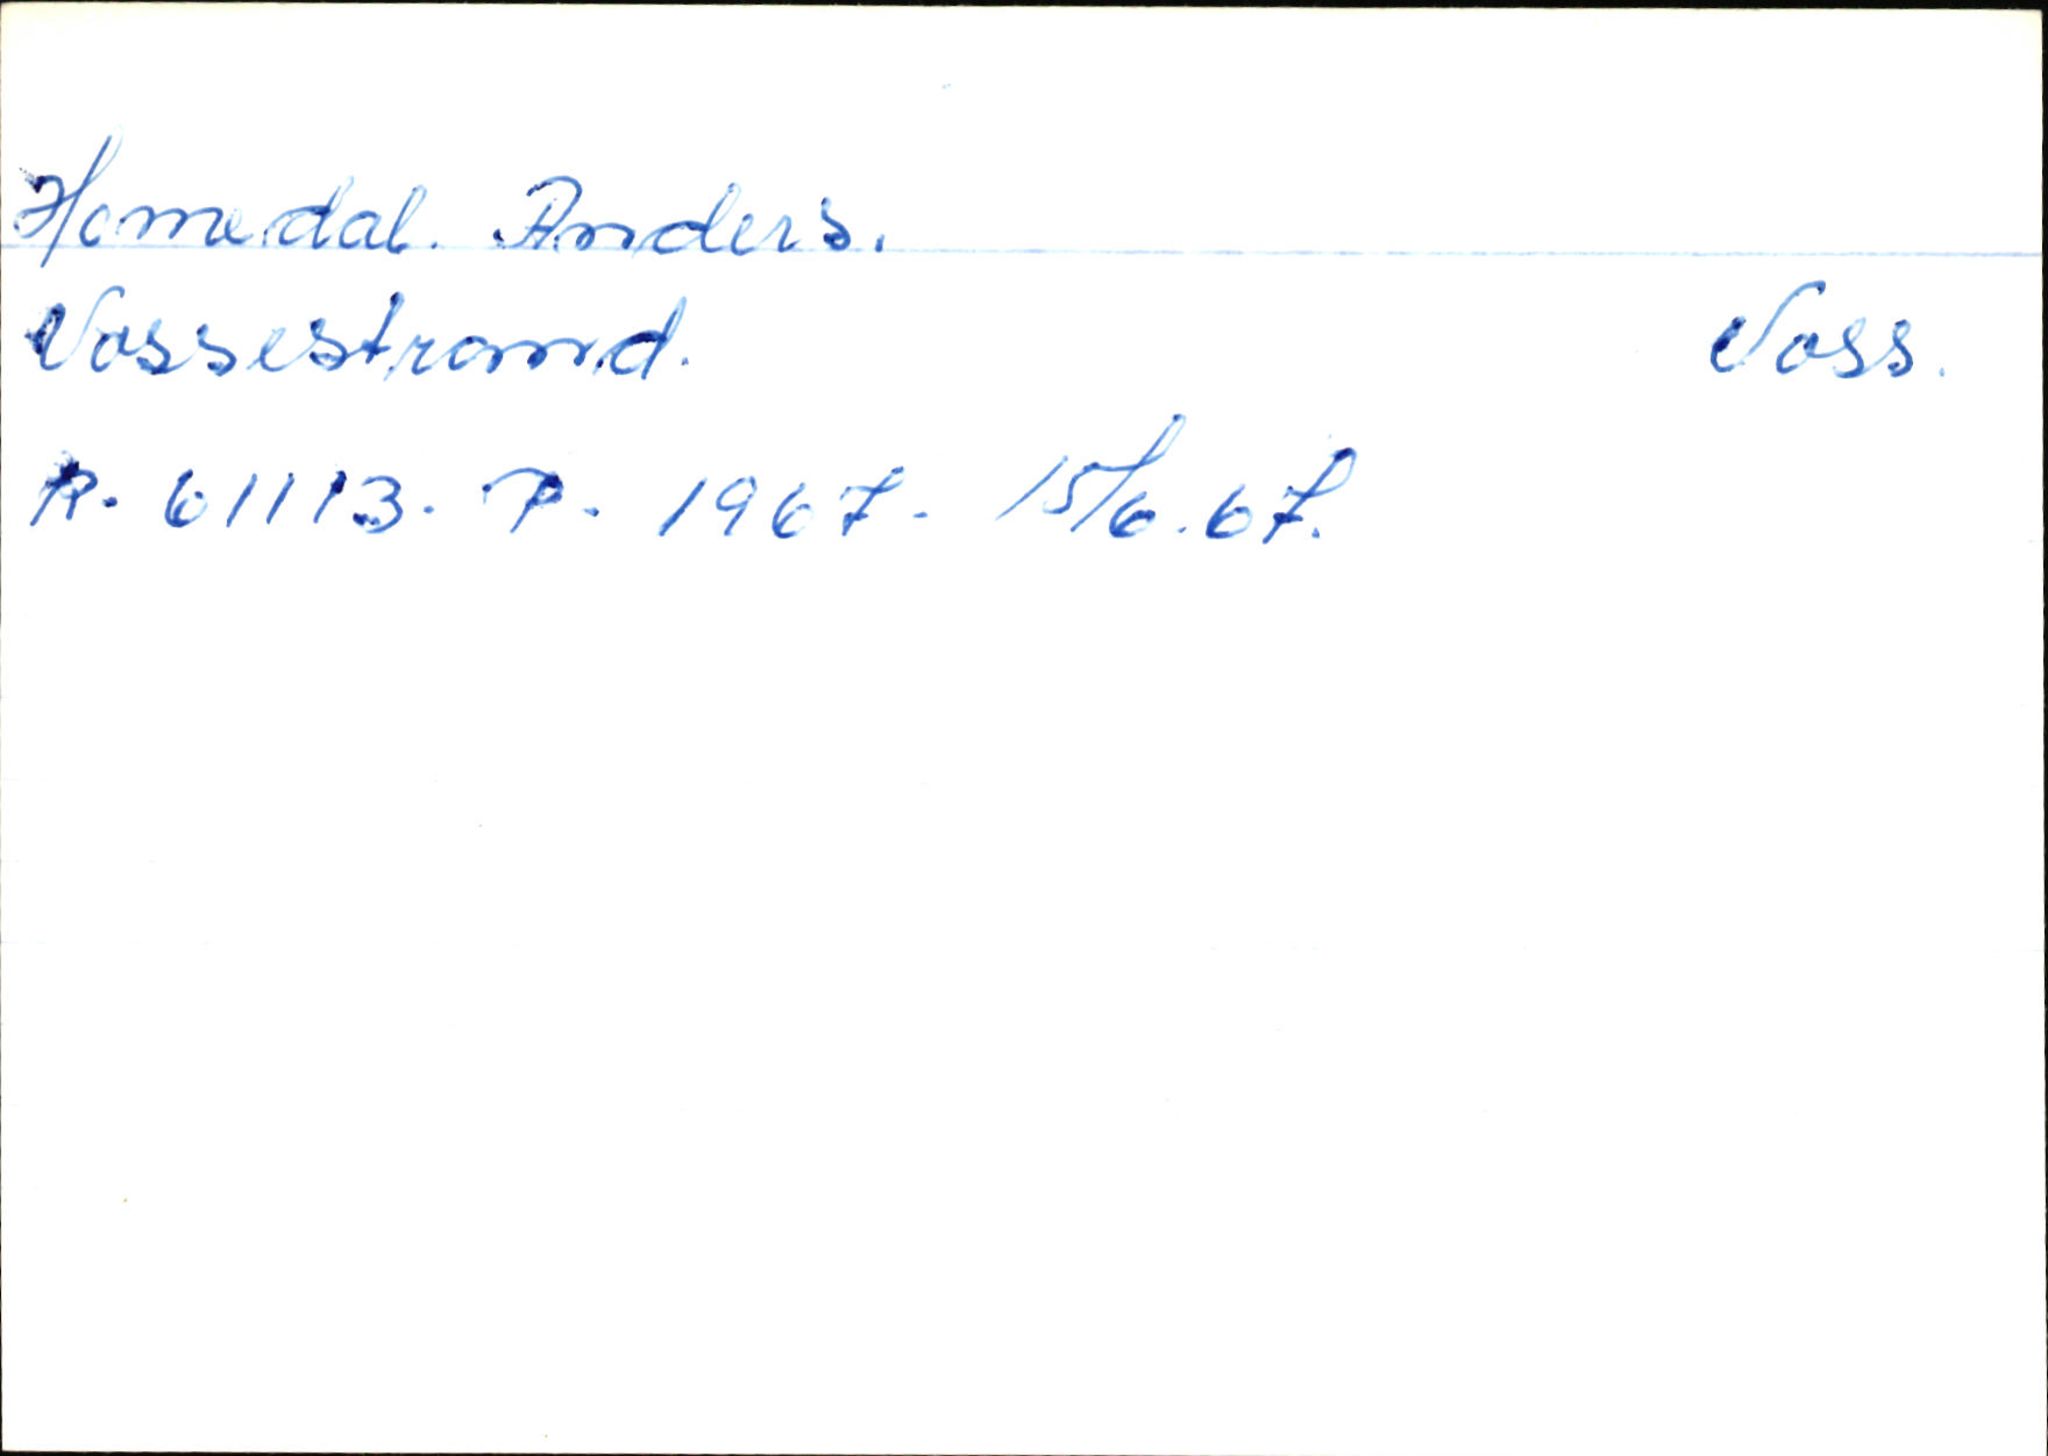 Homedal. Anders.
Vossestrand. Voss.
R. 61113. P. 1967. 15/6.67.